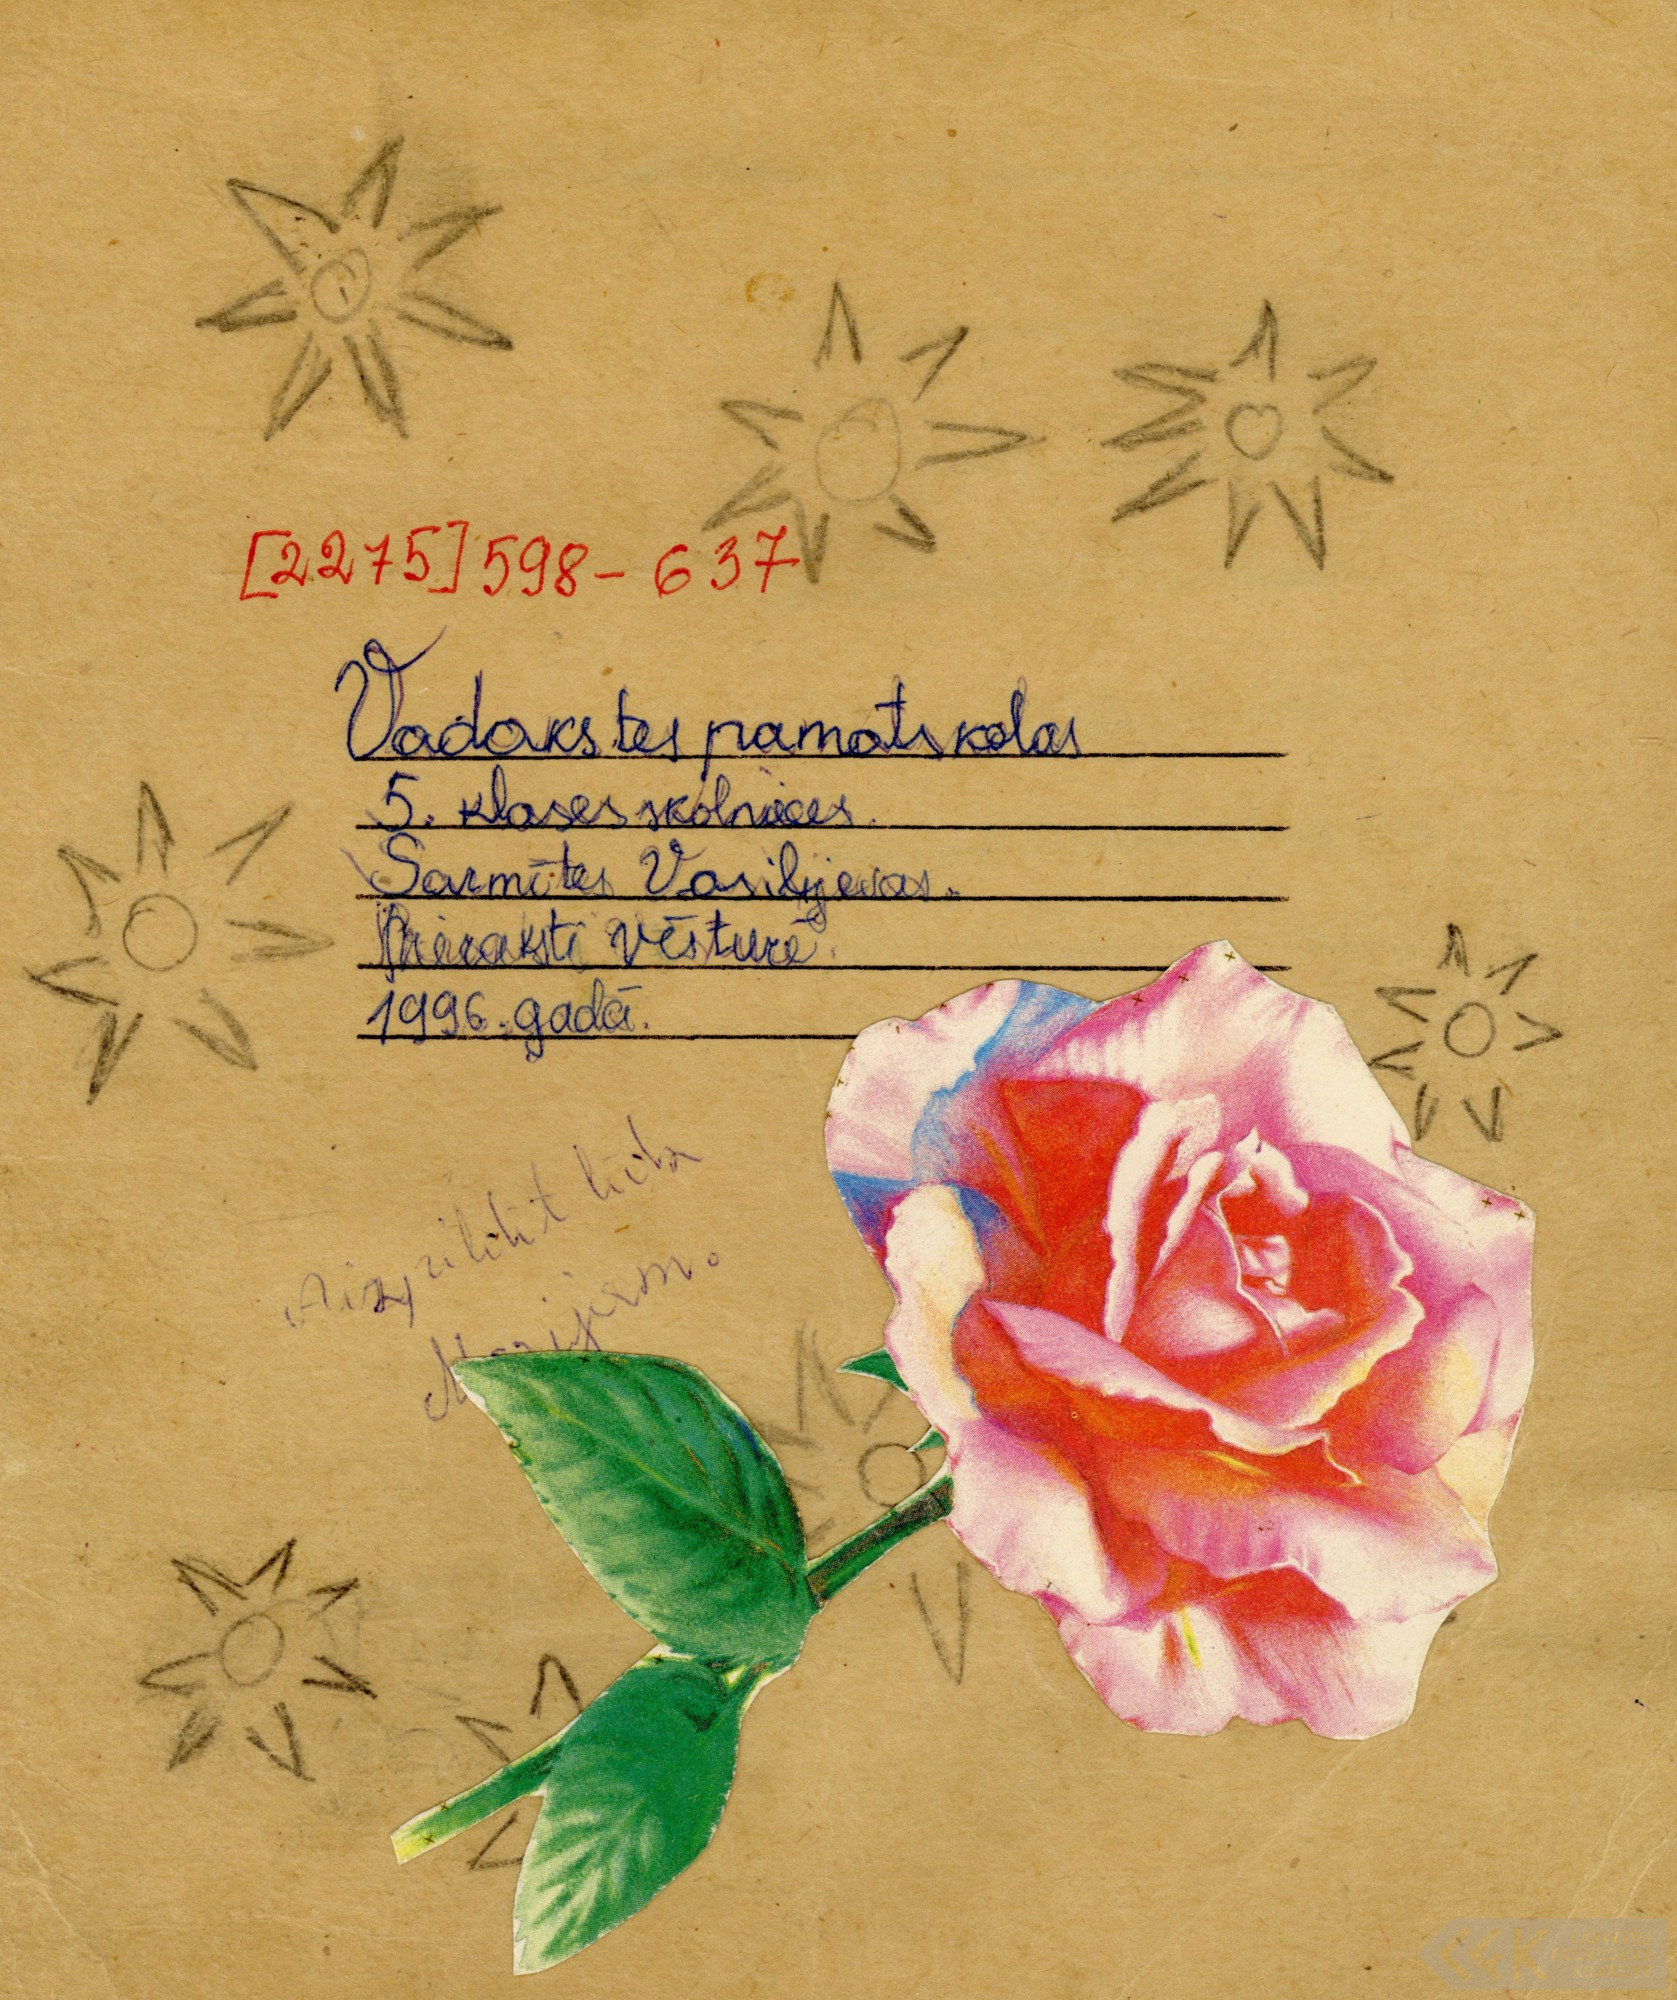 [2275] 598 - 637
Vadakstes pamatskolas
5. klases skolnieces.
Sarmītes Vasiļjevas.
Pieraksti vēsturē.
1996. gadā.
Aizpildīt